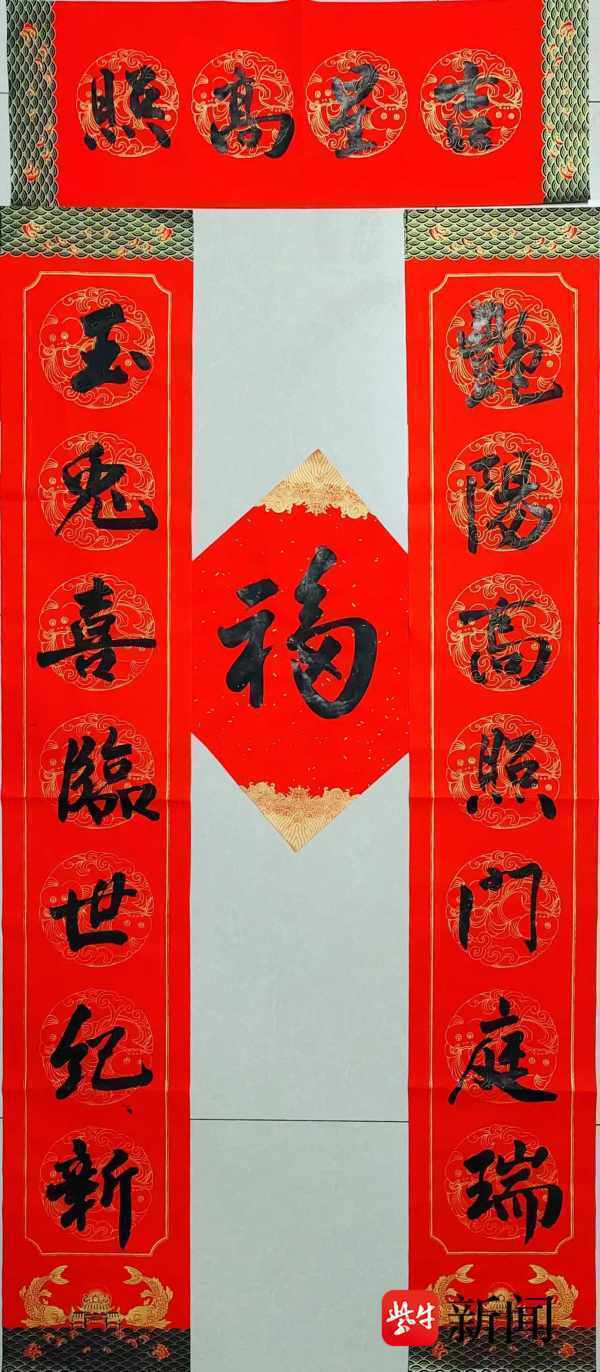 吉星高照
艷陽高照門庭瑞
玉兎喜臨世纪新
福
紫牛
新闻